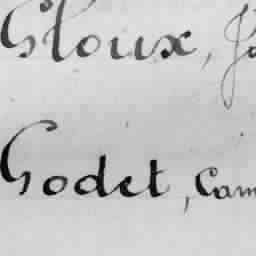 Gloux,
Godet, Cam